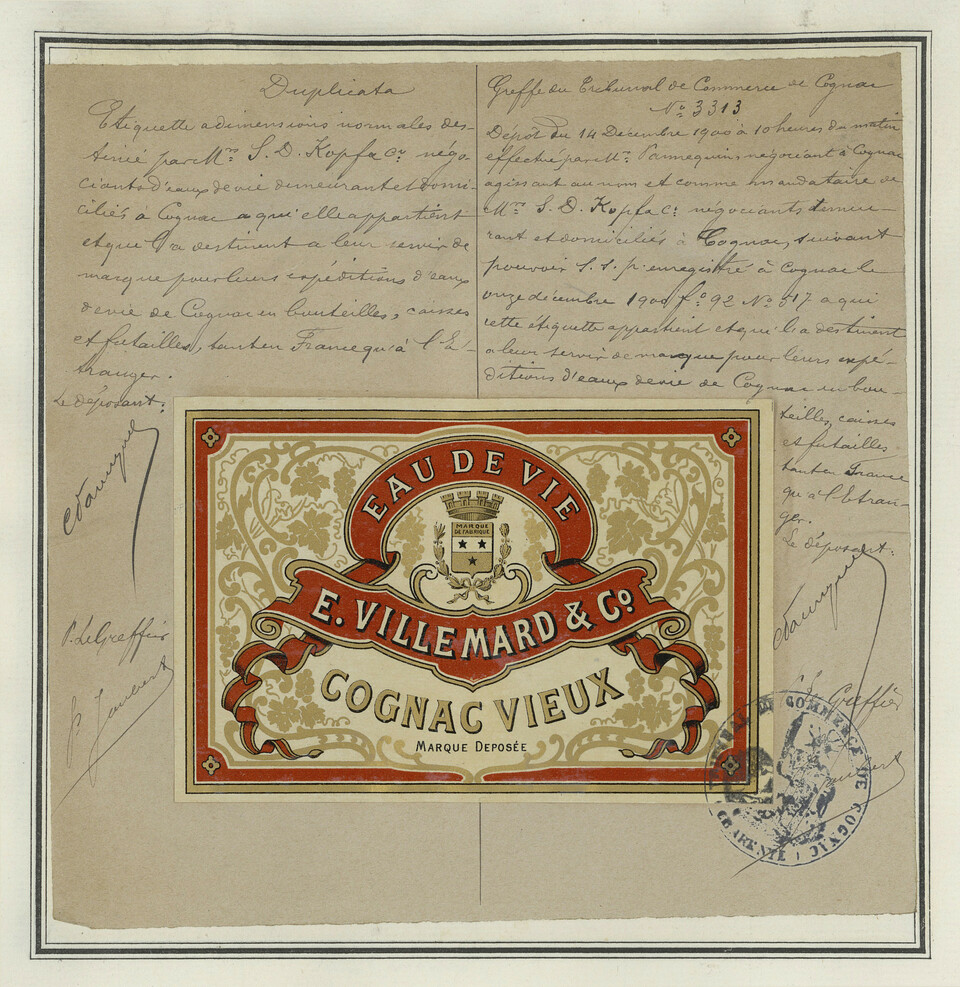 Duplicata
Etiquette a dimensions normales des-
tinée par Mrs S. D. Kopf & Cie négo-
ciants d'eaux de vie demeurant et domi-
ciliés à Cognac a qui elle appartient
et qui l'a destinent a leur servir de
marque pour leurs expéditions d'eaux
de vie de Cognac en bouteilles, caisses
et futailles, tant en France qu'à l'É-
tranger.
Le déposant:
P. Le Greffier
Greffe du Tribunal de Commerce de Cognac
No 3313
Dépôt du 14 Décembre 1900 à 10 heures du matin
effectué par Mr. Pannequin négociant à Cognac
agissant au nom et comme mandataire de
Mrs S. D. Kopf & Cie négociants demeu-
rant et domiciliés à Cognac, suivant
pouvoir S. S. p. enregistré à Cognac le
onze décembre 1900 fo 92 No 517 a qui
cette étiquette appartient et qui l a destinent
a leur servir de marque pour leurs expé-
ditions d'eaux de vie de Cognac en bou-
teilles, caisses
et futailles
tant en France
qu'à l'Etran-
ger.
Le déposant:
Greffier
EAU DE VIE
MARQUE
DE FABRIQUE
E. VILLEMARD & Co
COGNAC VIEUX
MARQUE DEPOSÉE
TRIBUNAL DE COMMERCE DE COGNAC
CHARENTE